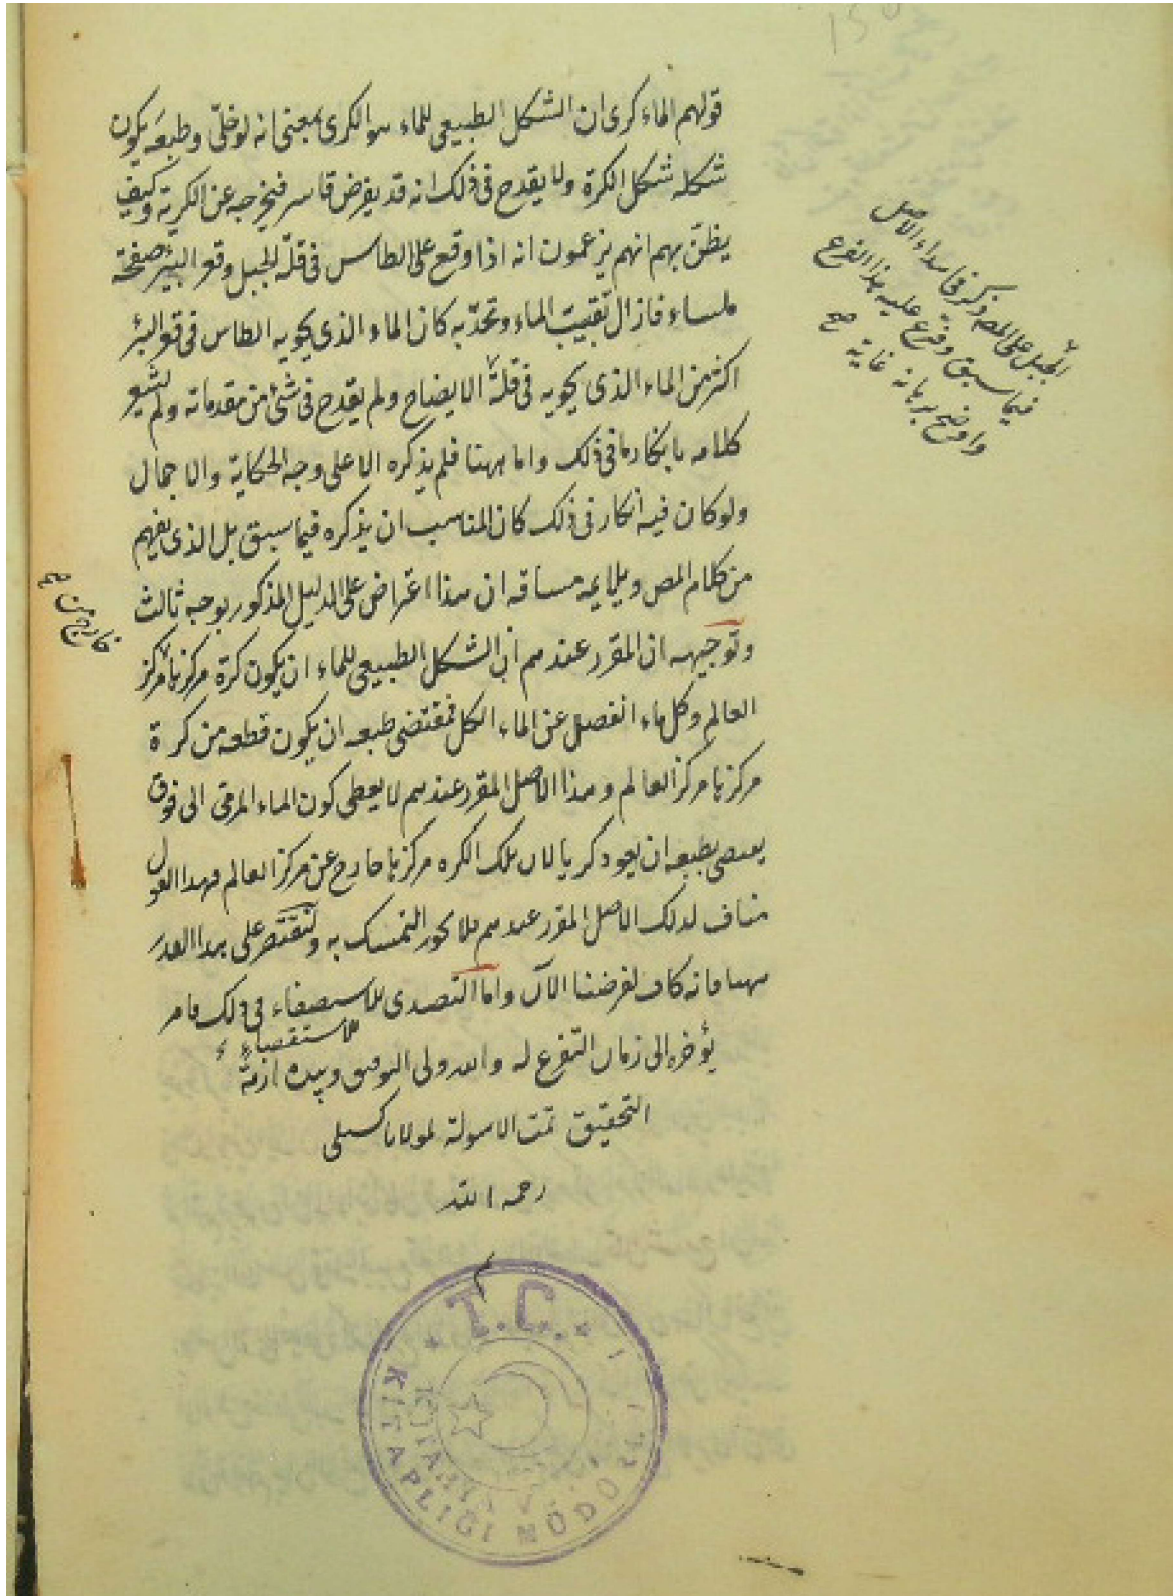 قولهم الماء كرى ان الشكل الطبيعى للماء هو الكرى بمعنى انه لو خلّى وطبعه يكون
شكله شكل الكرة ولا يقدح فى ذلك انه قد يفرض قاسر فيخرجه عن الكرية وكيف
يظنّ بهم انهم يزعمون انه اذا وقع على الطاس فى قلّة الجبل وقعر البئر صفحة
ملساء فازال تقبيب الماء وتحدّبه كان الماء الذى يحويه الطاس فى قعر البئر
اكثر من الماء الذى يحويه فى قلة الايضاح ولم يقدح فى شئ من مقدماته ولم يشعر
كلامه بانكار ما فى ذلك واما ههنا فلم يذكره الا على وجه الحكاية والاجمال
ولو كان فيه انكار فى ذلك كان المناسب ان يذكره فيما سبق بل الذى يفهم
من كلام المص ويلايمه مساقه ان هذا اعتراض على الدليل المذكور بوجه ثالث
وتوجيهه ان المقرر عندهم ان الشكل الطبيعى للماء ان يكون كرة مركزها مركز
العالم وكل ماء انفصل عن الماء الكل فمقتضى طبعه ان يكون قطعه من كرة
مركزها مركز العالم وهذا الاصل المقرر عندهم لا يعطى كون الماء المرقى الى فوق
يعصى بطبعه ان يعود كريا لان تلك الكره مركزها خارج عن مركز العالم فهذا القول
مناف لذلك الاصل المقرر عندهم فلا يجوز التمسك به ولنقتصر على هذا القدر
ههنا فانه كاف لغرضنا الآن واما التصدى للاستصفاء فى ذلك فامر
للاستقصاء
يؤخره الى زمان التفرغ له والله ولى التوفيق وبيده ازمّة
التحقيق تمت الاسولة لمولانا كستلى
رحمه الله
الجبل على المص وذكر فى ابتداء الاصل
فيما سبق وفرع عليه هذا الفرع
واوضح برهانه غاية صح
خارج عن صح
T.C.
KİTAPLIĞI MÜDÜRLÜĞÜ